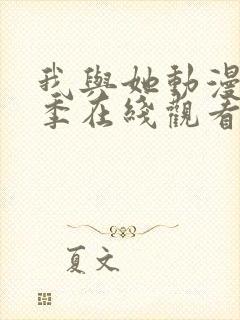 我與她動漫
季在綫觀看
夏文